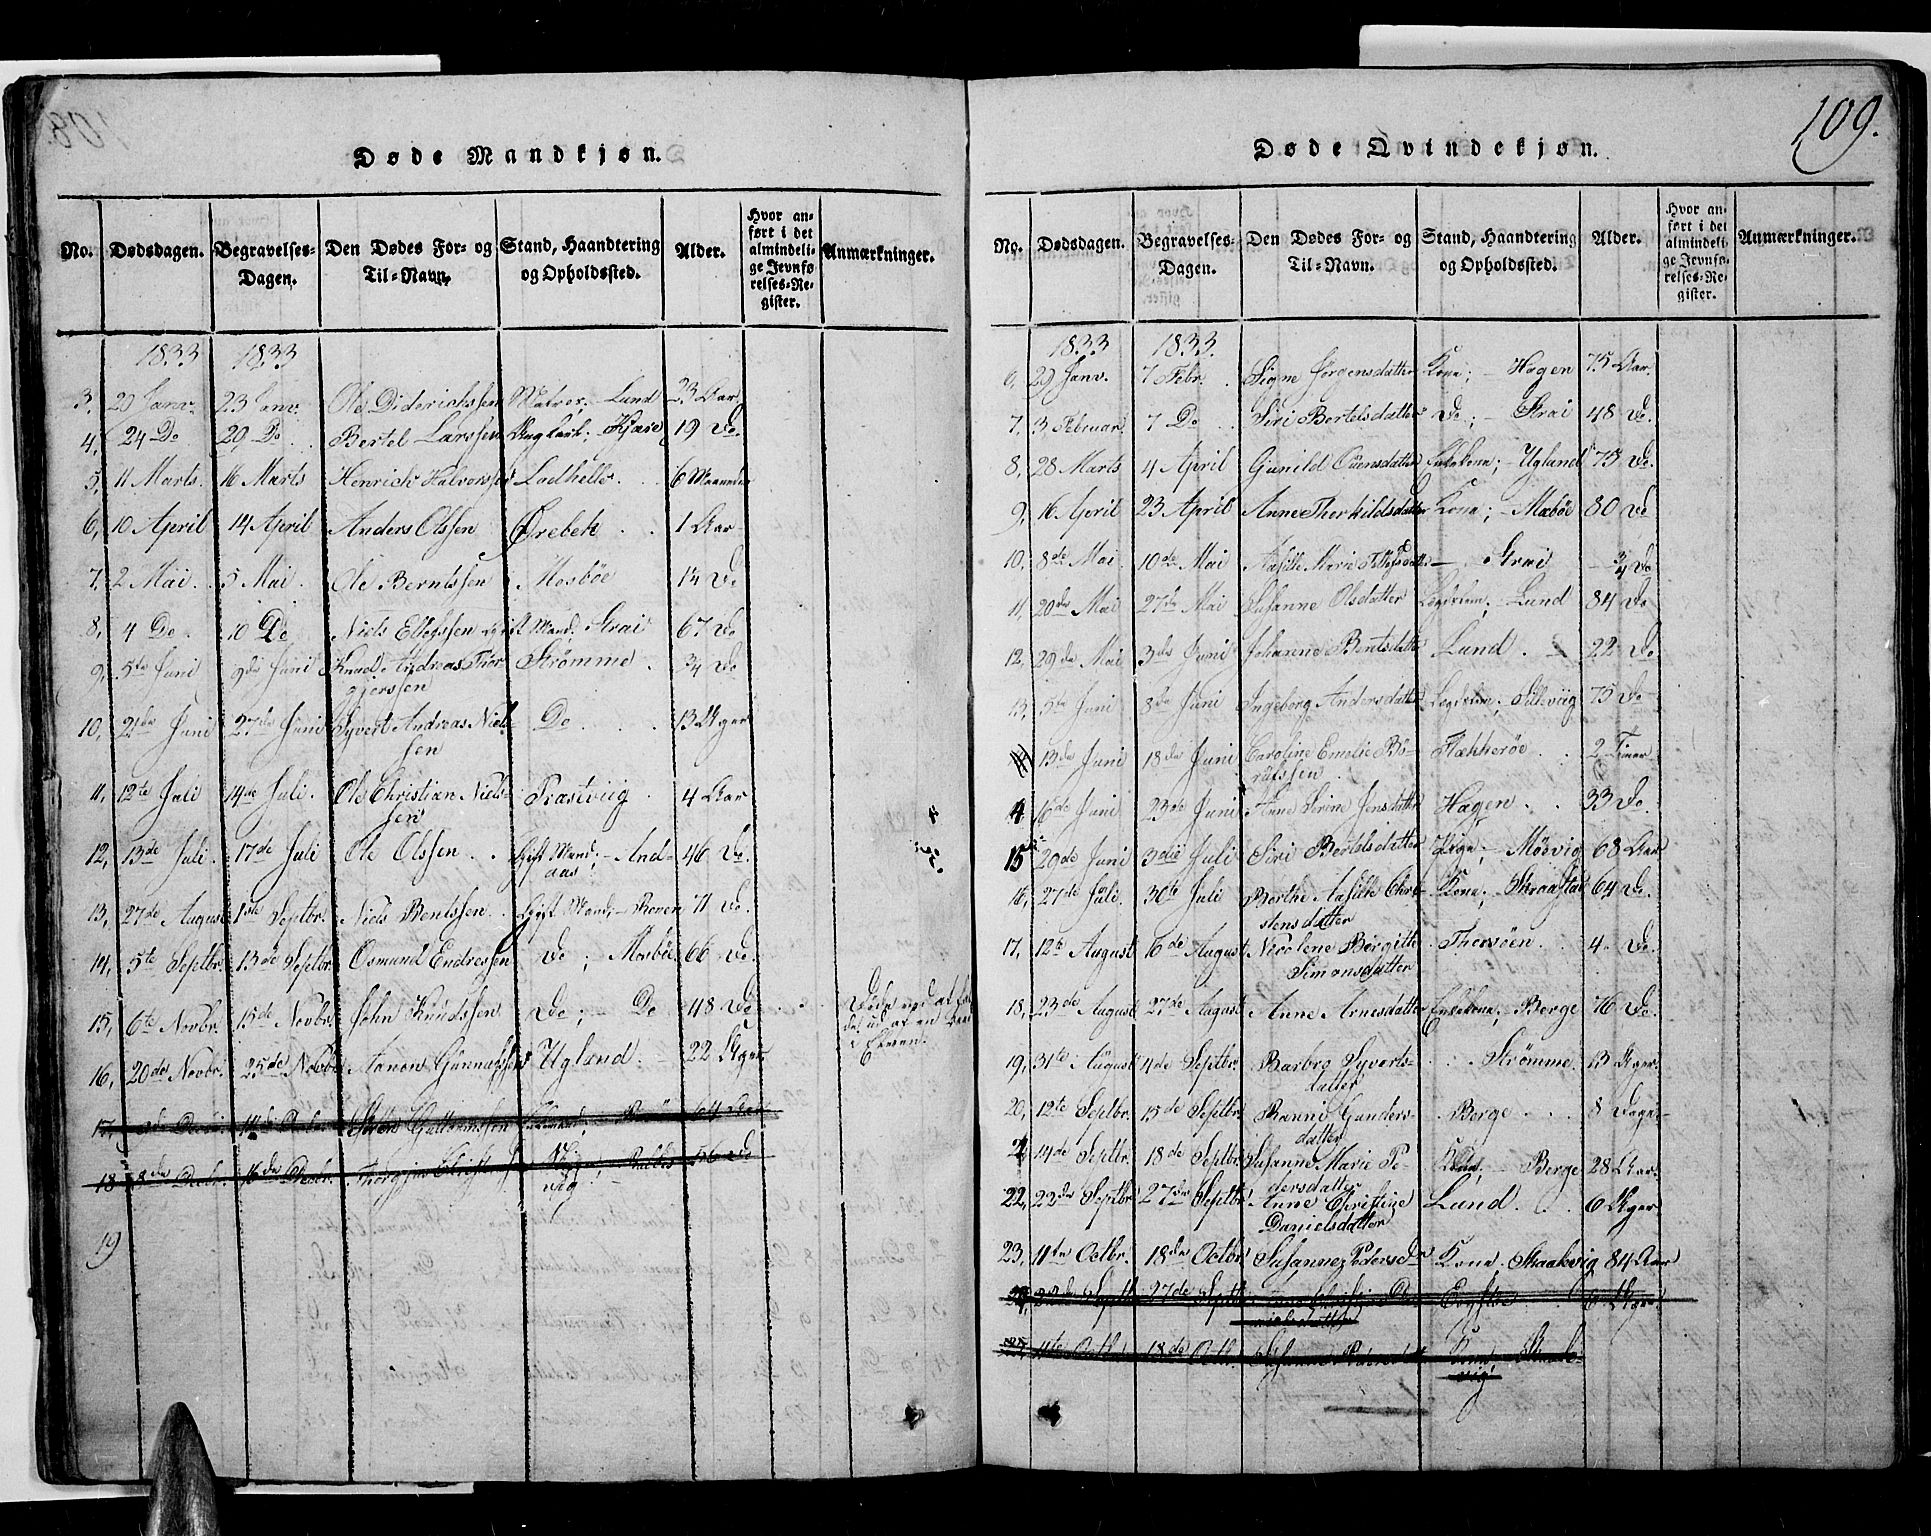 109.
Døde Mandkjøn.
No. Dødsdagen. Begravelses-Dagen. Den Dødes For- og Til-Navn. Stand, Haandtering og Opholdssted. Alder. Hvor anført i det almindelige Jevnførelses-Register. Anmærkninger.
1833 1833
3, 20 Janv. 23 Janv. Ole Diderichssen Matros, - Lund 23 Aar
4, 24 Do 29 Do Bertel Larssen Ungkarl; Kjære 19 Do.
5, 11 Marts. 16 Marts Henrich Halvorssen Lodhelle 6 Maaneder
6, 10 April 14 April Anders Olssen Ørebek 1 Aar
7, 2 Mai 5 Mai Ole Berntssen Mosbøe 14 Do
8, 4 Do 10 Do Niels Ellefssen Gift Mand; Strai 67 Do
9, 5te Juni 9de Juni Knud Andreas Thor- Strømme 34 Do
gjerssen
10, 21de Juni 27de Juni Syvert Andreas Niel- Do 13 Uger
sen
11, 12te Juli 14de Juli. Ole Christian Niels- Præstviig 4 Aar
sen
12, 13de Juli. 17de Juli Ole Olssen Gift Mand; - And- 46 Do.
aas
13, 27de August 1ste Septbr. Niels Bentssen Gift Mand; - Roven 71 Do.
14, 5te Septbr. 13de Septbr. Osmund Endressen Do ; Mosbøe 66 Do.
15, 6te Novbr. 15de Novbr. John Knudssen Do; - Do 48 Do Døde ved at fal
det ud af en Baad
i Elven.
16, 20de Novbr. 25de Novbr Aanon Gunnufssen Ugland 22 Uger
17, Guttormssen 64 Aar
18 8de 16de Thorgjus Christens 56 Do
19
Døde Qvindekjøn.
No. Dødsdagen. Begravelses-Dagen. Den Dødes For- og Til-Navn. Stand, Haandtering og Opholdssted. Alder. Hvor anført i det almindelige Jevnførelses-Register. Anmærkninger.
1833 1833.
6, 29 Janv. 7 Febr. Signe Jørgensdatter Kona; - Hagen 75 Aar.
7, 3 Februar. 7 Do Siri Bertelsdatter Do; - Strai 48 Do.
8, 28 Marts 4 April Gunild Ouensdatter Enkekona; - Ugland 75 Do.
9, 16 April 23 April Anne Therkildsdatter Kona; - Mæbøe 80 Do
10, 8de Mai 10de Mai Aasille Marie - Strai - 3/4 Do
11, 20de Mai 27de Mai Susanne Olsdatter Lund 84 Do
12, 29de Mai 3de Juni Johanne Bentsdatter Lund 22 Do
13, 5te Juni 8de Juni Ingeborg Andersdatter 75 Do
13de Juni 18de Juni Caroline Emelie Bø- Flækkerøe 2 Timer
rufssen
4 16de Juni 23de Juni Anne Trine Jensdatter Hagen 33 Do.
15 29de Juni 3die Juli Siri Bertelsdatter Pige; - Møsvig 68 Aar
16, 27de Juli. 30te Juli Berthe Aasille Chri- Kona; - 64 Do.
stensdatter
17, 12te August 16de August Nicolene Børgitte Thorsøen 4 Do.
Simonsdatter
18, 23de August 27de August Anne Arnesdatter Enkekona; Berge 76 Do.
19, 31te August 4de Septbr. Barbro Syverts- Strømme 13 Uger.
datter
20, 12te Septbr. 15de Septbr. Ranni Gunders- Berge 8 Dage
datter
21, 14de Septbr. 18de Septbr. Susanne Marie Pe- Kona; - Berge 28 Aar.
dersdatter
22, 22de Septbr. 27de Septbr. Anne Christine Lund 6 Uger
Danielsdatter
23, 11te Octbr. 18de Octbr. Susanne Peders Dr Kona. Skaalevig 84 Aar
22de Septbr 27de Septbr 6 Uger
11te Octbr 18de Octbr. Susanne Pedersdtr Kona; Skaale-
vig